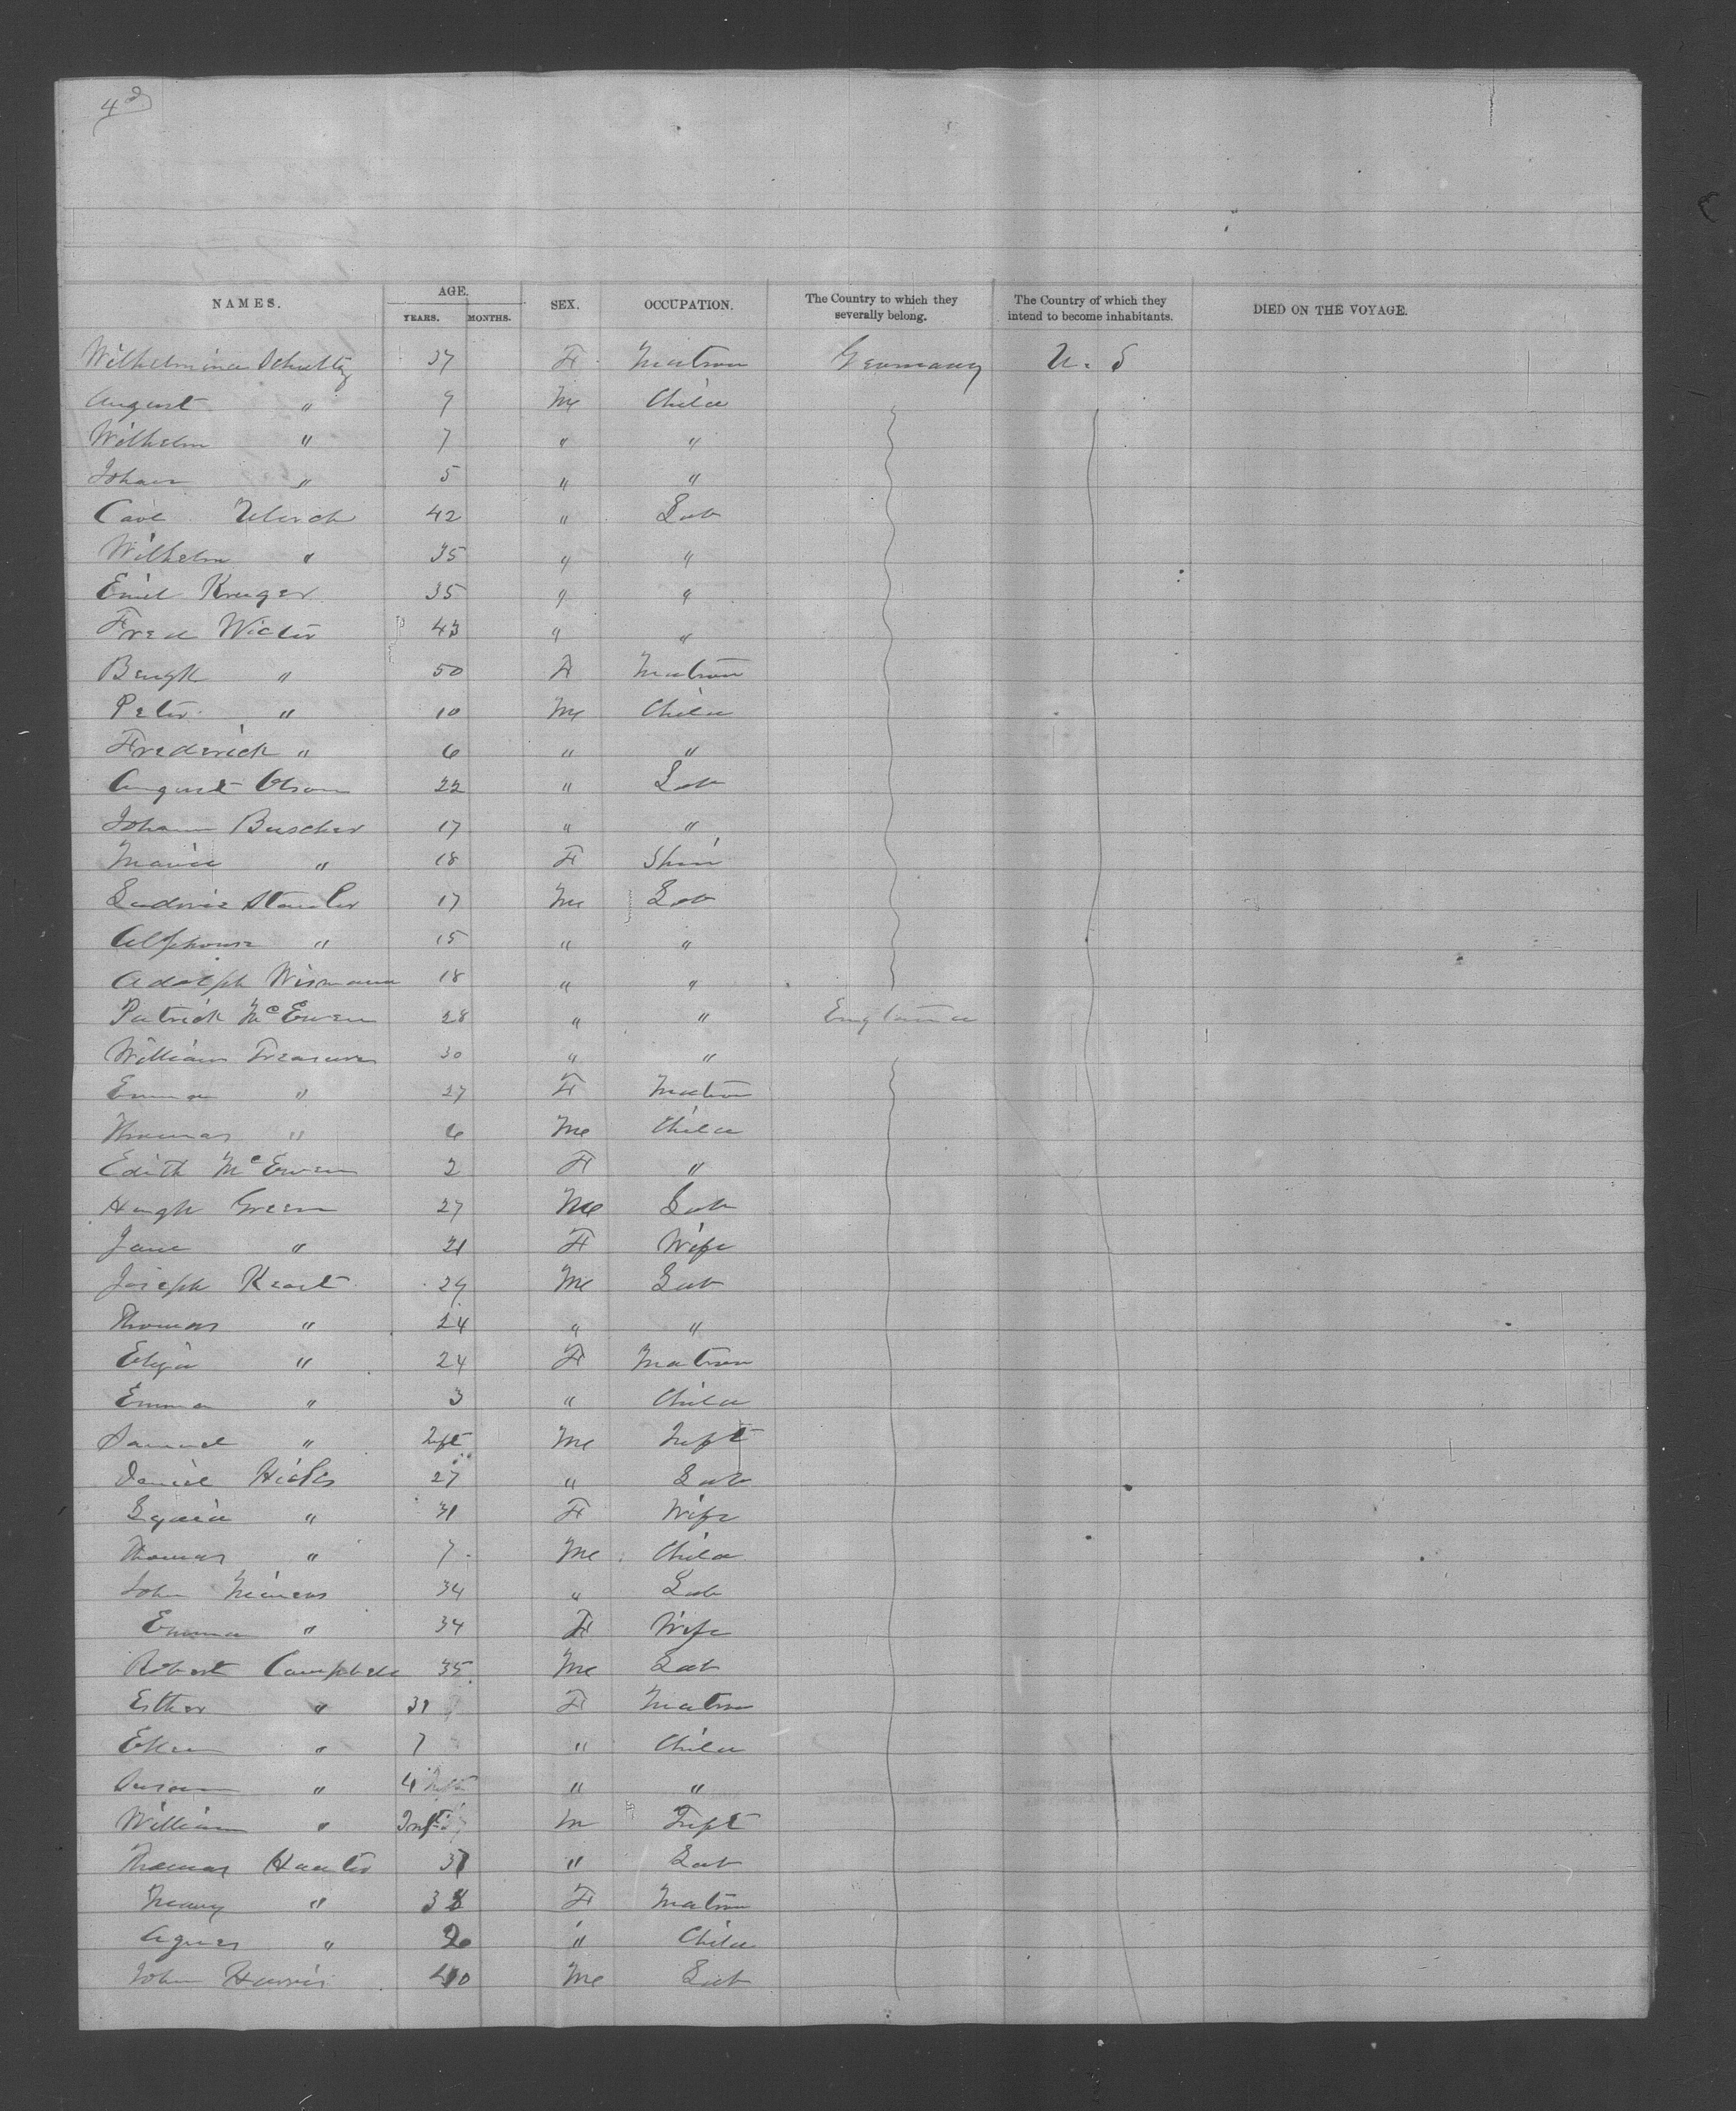 4
NAMES. AGE. YEARS. MONTHS. SEX. OCCUPATION. The Country to which they severally belong. The Country of which they intend to become inhabitants. DIED ON THE VOYAGE.
Wilhelmina Schultz 37 F Matron Germany U. S
August " 9 M Child
Wilhelm " 7 " "
Johan " 5 " "
Carl Ulrich 42 " Lab
Wilhelm " 35 " "
Emil Kruger 35 " "
Fred Wictor 43 " "
" 50 F Matron
Peter " 10 M Child
Frederick " 6 " "
August Olson 22 " Lab
Johann Buscher 17 " "
Maria " 18 F Spin
Ludwig 17 M Lab
Alphonse " 15 " "
Adolph Wismann 18 " "
Patrick McEwen 28 " " England
William Treasure 30 " "
Emma " 27 F Matron
Thomas " 6 M Child
Edith McEwen 2 F "
Hugh Green 27 M Lab
Jane " 21 F Wife
Joseph Keast 29 M Lab
Thomas " 24 " "
Eliza " 24 F Matron
Emma " 3 " Child
Samuel " Inft M Inft
Daniel Hicks 27 " Lab
" 31 F Wife
Thomas " 7 M Child
John 34 " Lab
Emma " 34 F Wife
Robert Campbell 35 M Lab
Esther " 31 F Matron
Ellen " 7 " Child
Susan " 4 " "
William " Inft M Inft
Thomas Hunter 37 " Lab
Mary " 38 F Matron
Agnes " " Child
John Harris 40 M Lab